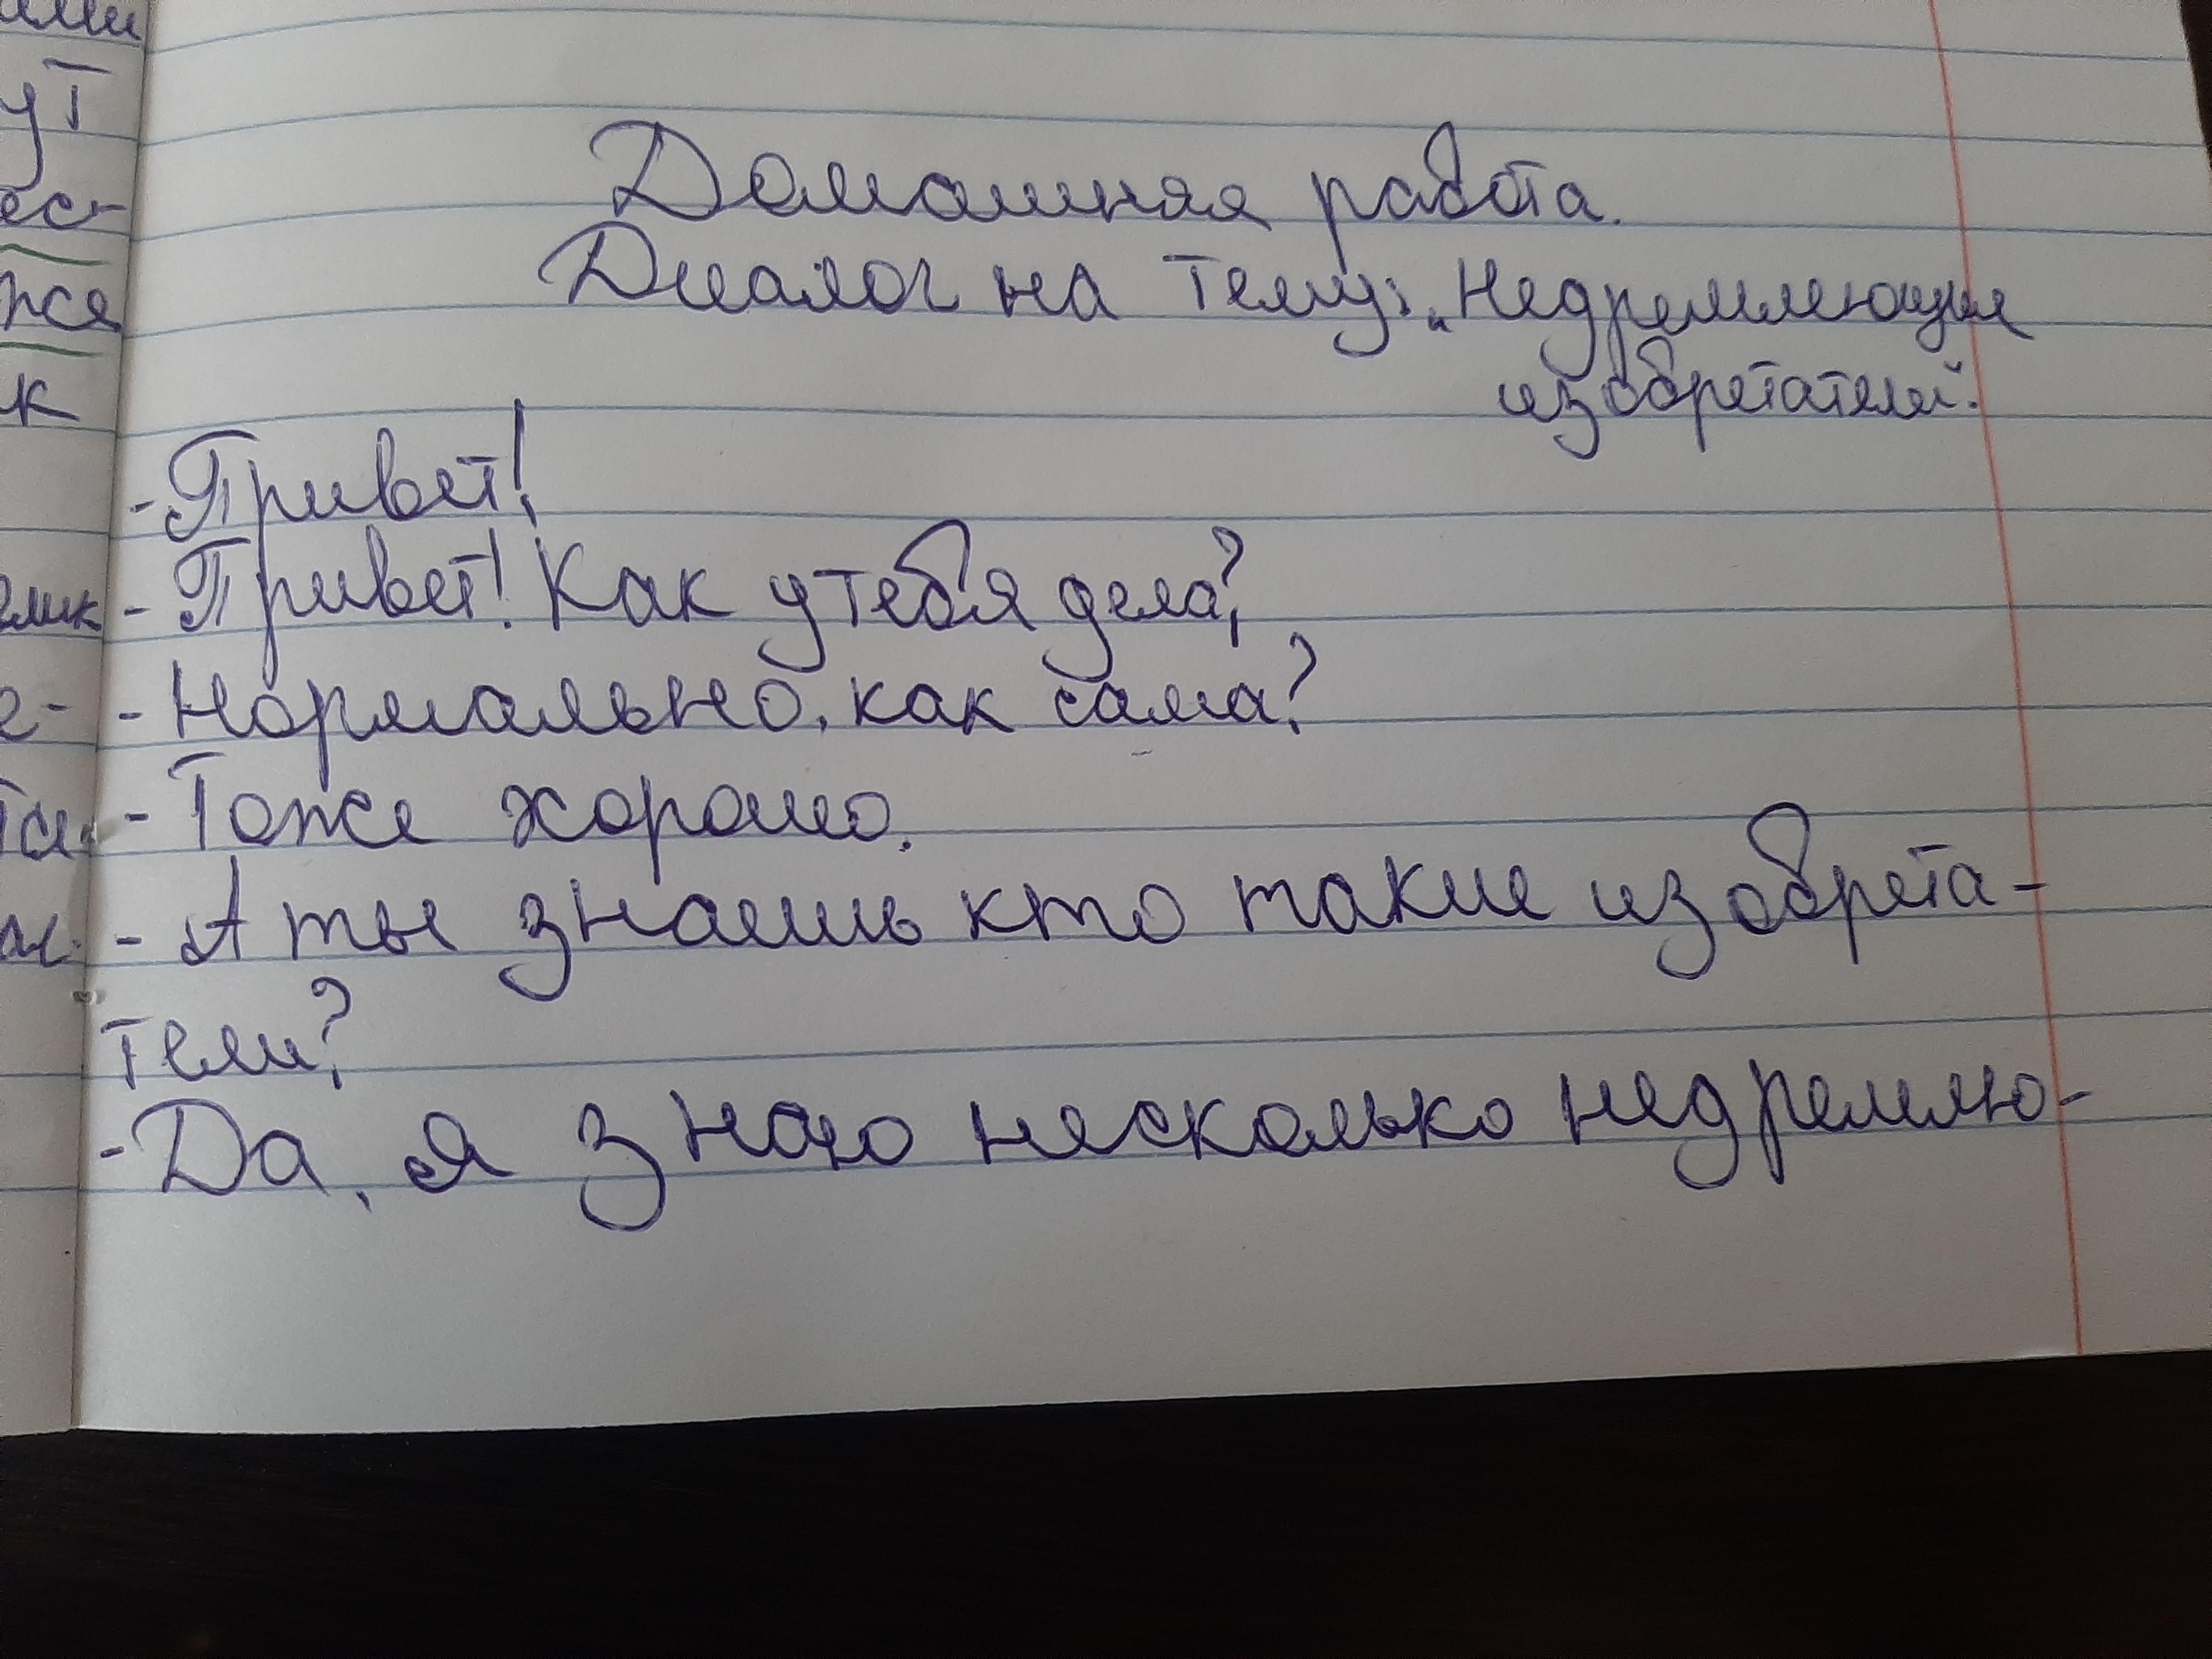 Домашняя работа.
Диалог на тему: „Недремлющие
изобретатели".
- Привет!
- Привет! Как у тебя дела?
- Нормально, как сама?
- Тоже хорошо.
- А ты знаешь кто такие изобрета-
тели?
- Да, я знаю несколько недремлю-